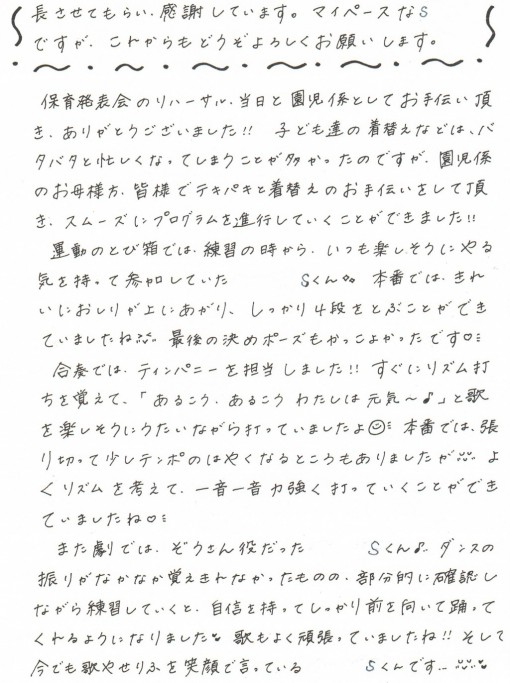 長させてもらい、感謝しています。マイペースなS
ですが、これからもどうぞよろしくお願いします。
保育発表会のリハーサル、当日と園児係としてお手伝い頂
き、ありがとうございました!! 子ども達の着替えなどは、バ
タバタと忙しくなってしまうことが多かったのですが、園児係
のお母様方、皆様でテキパキと着替えのお手伝いをして頂
き、スムーズにプログラムを進行していくことができました!!
運動のとび箱では、練習の時から、いつも楽しそうにやる
気を持って参加していた Sくん 本番では、きれ
いにおしりが上にあがり、しっかり4段をとぶことができ
ていましたね 最後の決めポーズもかっこよかったです♡
合奏では、ティンパニーを担当しました!! すぐにリズム打
ちを覚えて、「あるこう、あるこう わたしは元気〜♪」と歌
を楽しそうにうたいながら打っていましたよ☺ 本番では、張
り切って少しテンポのはやくなるところもありましたが よ
くリズムを考えて、一音一音力強く打っていくことができ
ていましたね♡
また劇では、ぞうさん役だった Sくん♪ ダンスの
振りがなかなか覚えきれなかったものの、部分的に確認し
ながら練習していくと、自信を持ってしっかり前を向いて踊って
くれるようになりました 歌もよく頑張っていましたね!! そして
今でも歌やせりふを笑顔で言っている Sくんです…